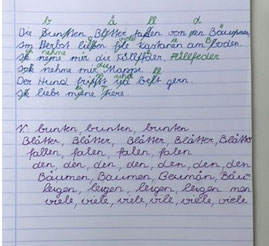 b ä ll d
Die Bunsten Blätter falen von den Bäumen.
Im Herbst liegen file Kastanien am Boden.
Ich neme mir die Füllfeder. Füllfeder
Ich nehme mir Mappe.
Der Hund frisst Beft gern.
Ich liebe meine Tiere.
V: bunten, bunten, bunten
Blätter, Blätter, Blätter, Blätter, Blätter
fallen, falen, falen, falen
den, den, den, den, den, den, den
Bäumen, Baumen, Beumän, Bäu-
leigen, leigen, leigen, leigen, man
viele, viele, viele, viele, viele, viele